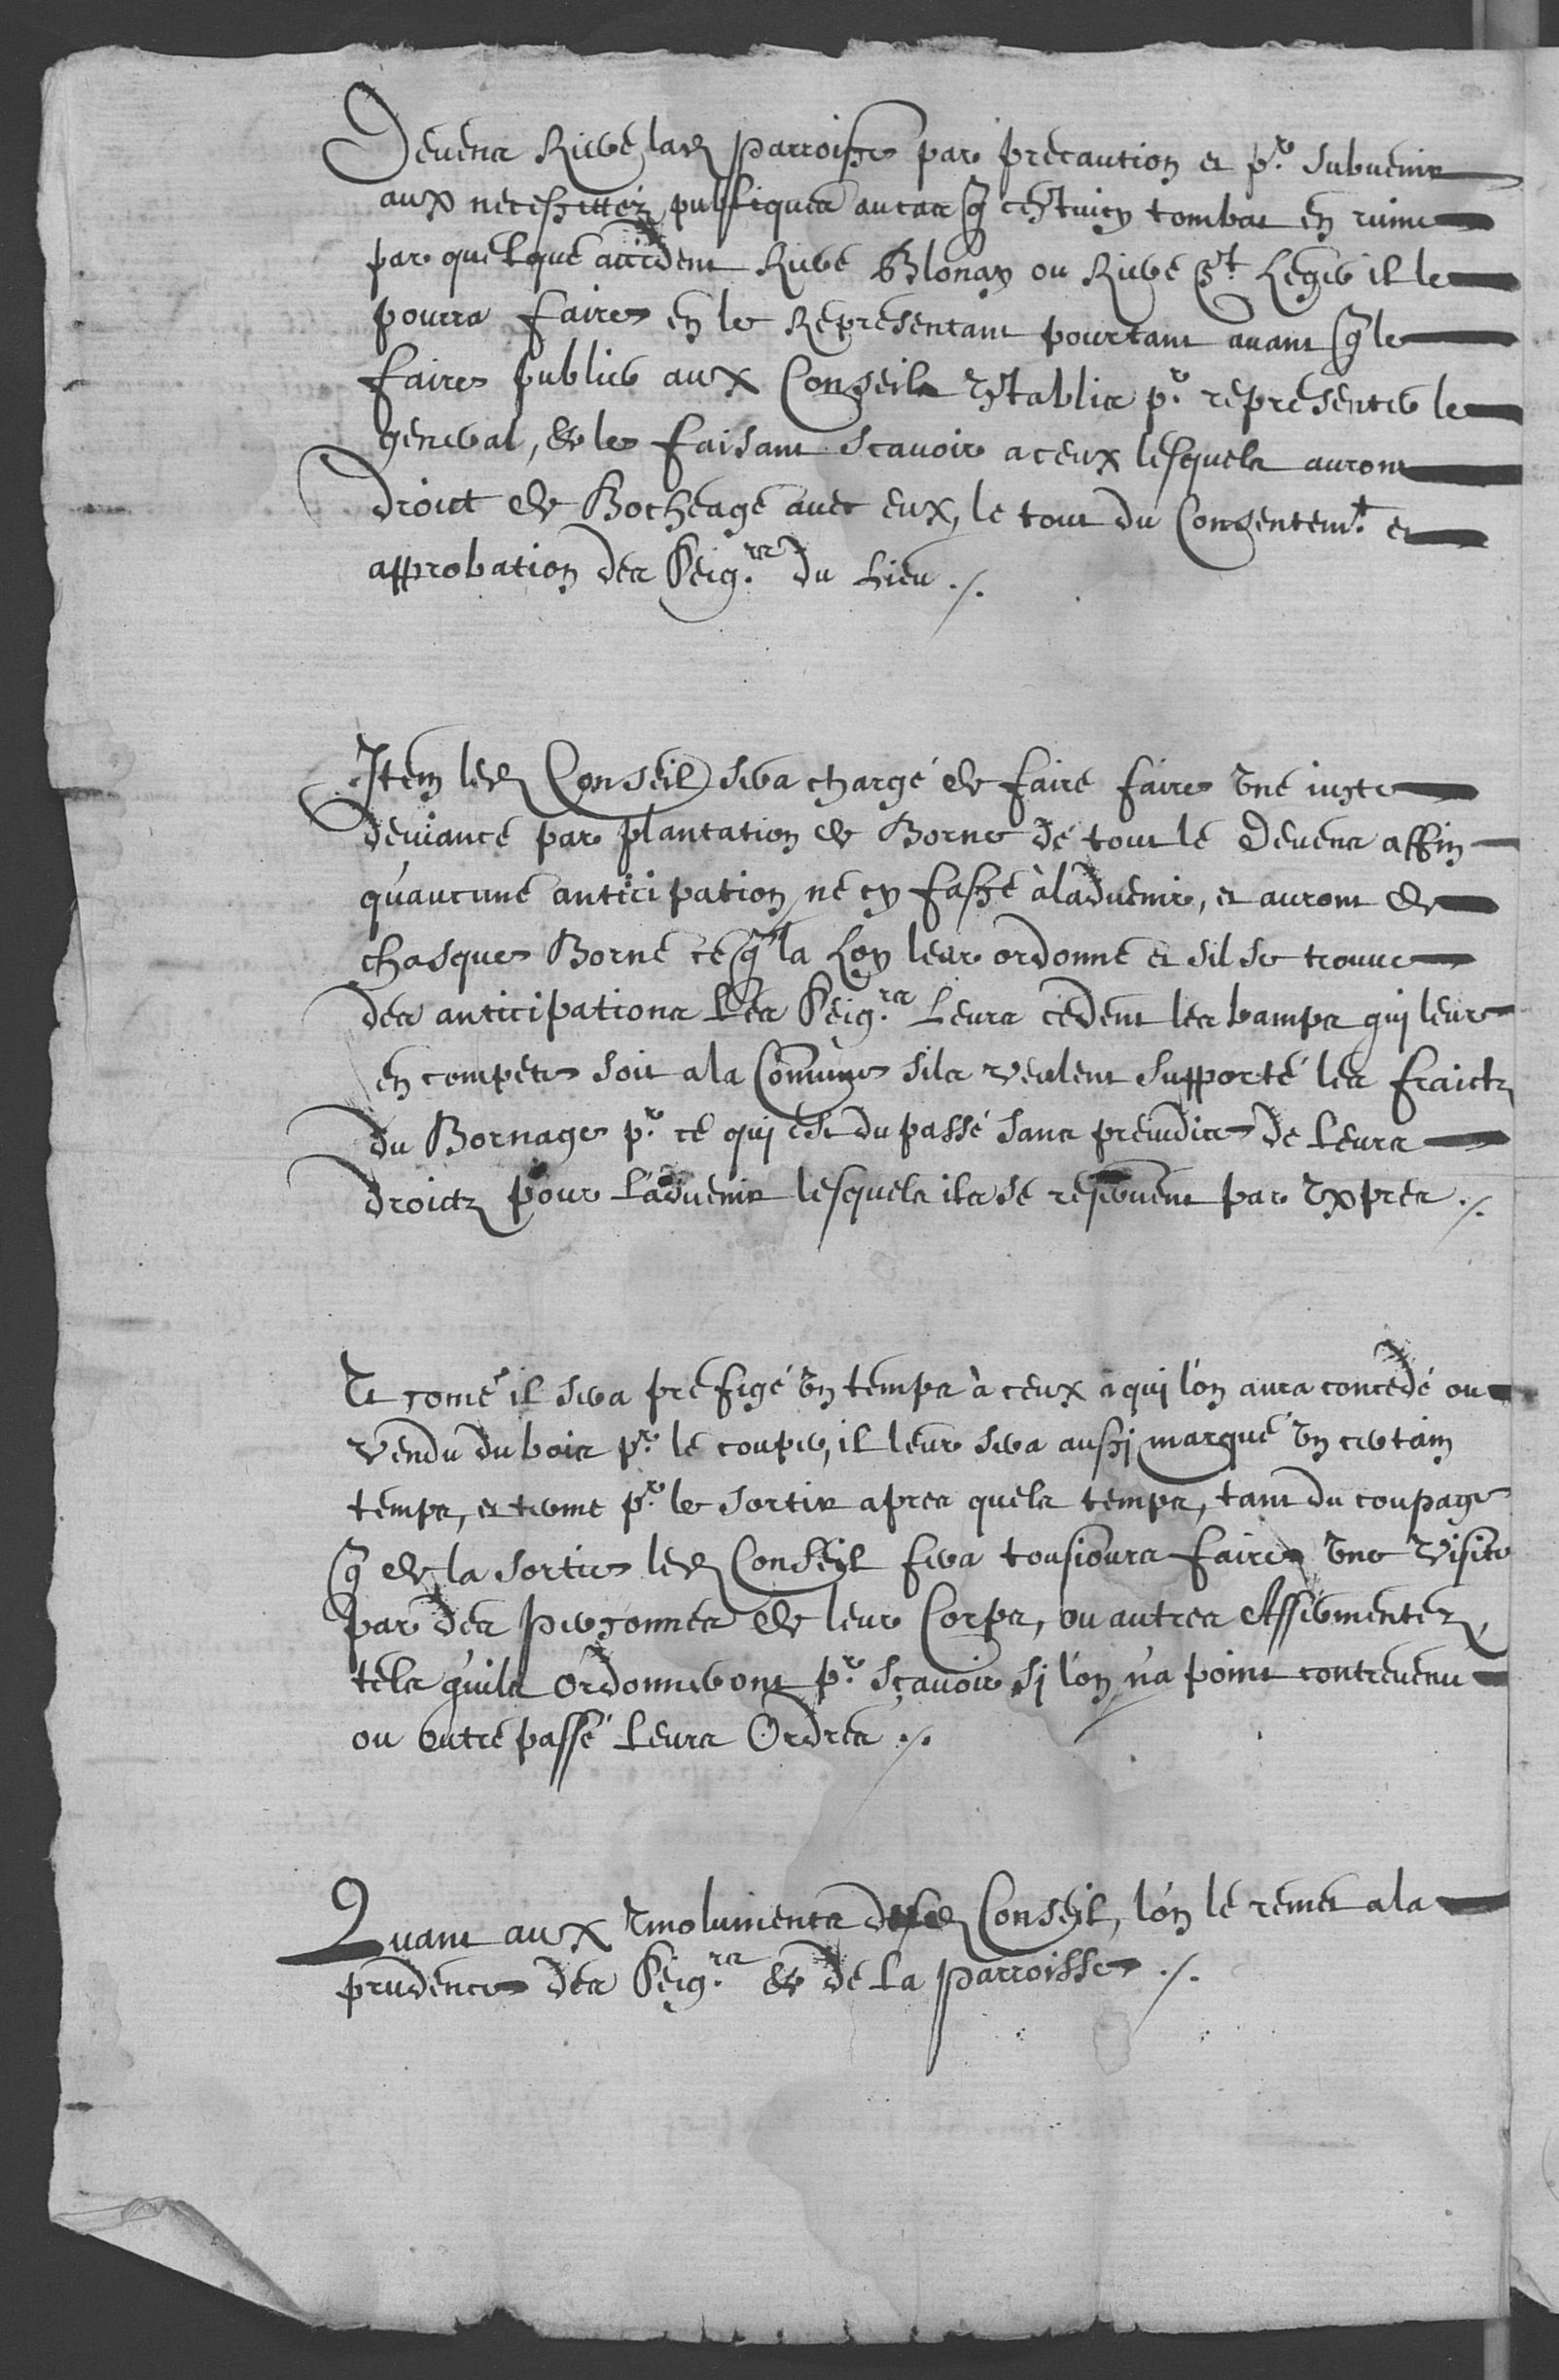 Devens Riere lad parroisse par precaution et pr subvenir
aux necessittéz publiques au cas q cestuicy tombat en ruine
par quelque accident Riere Blonay ou Riere St Legier il le
pourra faire en le Representant pourtant avant q le
faire publier aux Conseils Establis pr representer le
general, & le faisant scavoir a ceux lesquels auront
droict de Bocheage avec eux, le tout du Consentemt et
approbation des Seigrs du Lieu ./.
Item led Conseil sera chargé de faire faire une juste
deviance par plantation de Borne de tout le Devens affin
quaucune anticipation ne cy fasse à ladvenir, et auront de
chasque Borne ce q la Loy leur ordonne et sil se trouve
des anticipations Les Seigrs Leurs cedent les bamps qui leur
en compete soit a la Comune sils veulent supporté les fraictz
du Bornage pr ce qui est du passé sans prejudice de Leurs
droictz pour L'advenir lesquels ils se reservent par Expres ./.
Et come il sera prefigé un temps à ceux a qui l'on aura concedé ou
vendu du bois pr le couper, il leur sera aussi marqué un certain
temps, et terme pr le sortir apres quels temps, tant du coupage
q de la sortie led Conseil fera tousjours faire une visite
par des personnes de leur Corps, ou autres Assermentez
tels quils ordonneront pr sçavoir si l'on n'a point contrevenu
ou outrepassé Leurs Ordres ./.
Quant aux Emoluments dud Conseil, l'on le remet a la
prudence des Seigrs & de La parroisse ./.